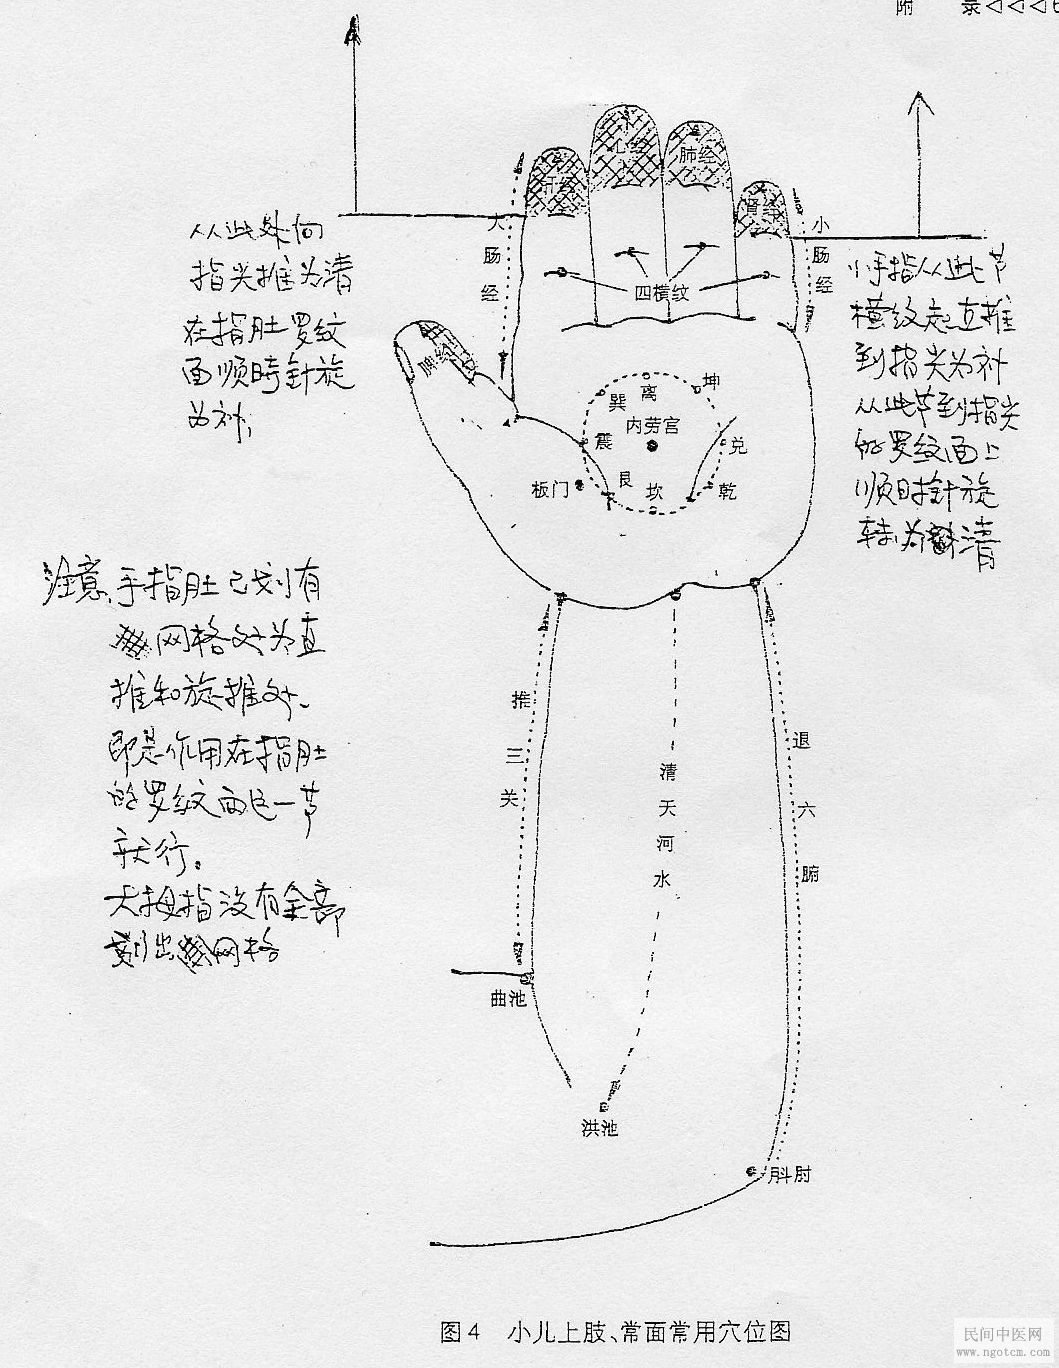 附 录◁◁◁
心经
肺经
肝经
肾经
大肠经
小肠经
四横纹
脾经
从此处向
指尖推为清
在指肚罗纹
面顺時针旋
为补,
小手指从此节
横纹起直推
到指尖为补
从此节到指尖
的罗纹面上
顺时针旋
转为清
离
坤
巽
内劳宫
震
兑
艮
坎
乾
板门
注意、手指肚已划有
网格处为直
推和旋推处、
即是作用在指肚
的罗纹面这一节
就行。
大拇指没有全部
划出网格
推三关
清天河水
退六腑
曲池
洪池
㪷肘
图4 小儿上肢、常面常用穴位图
民间中医网
www.ngotcm.com